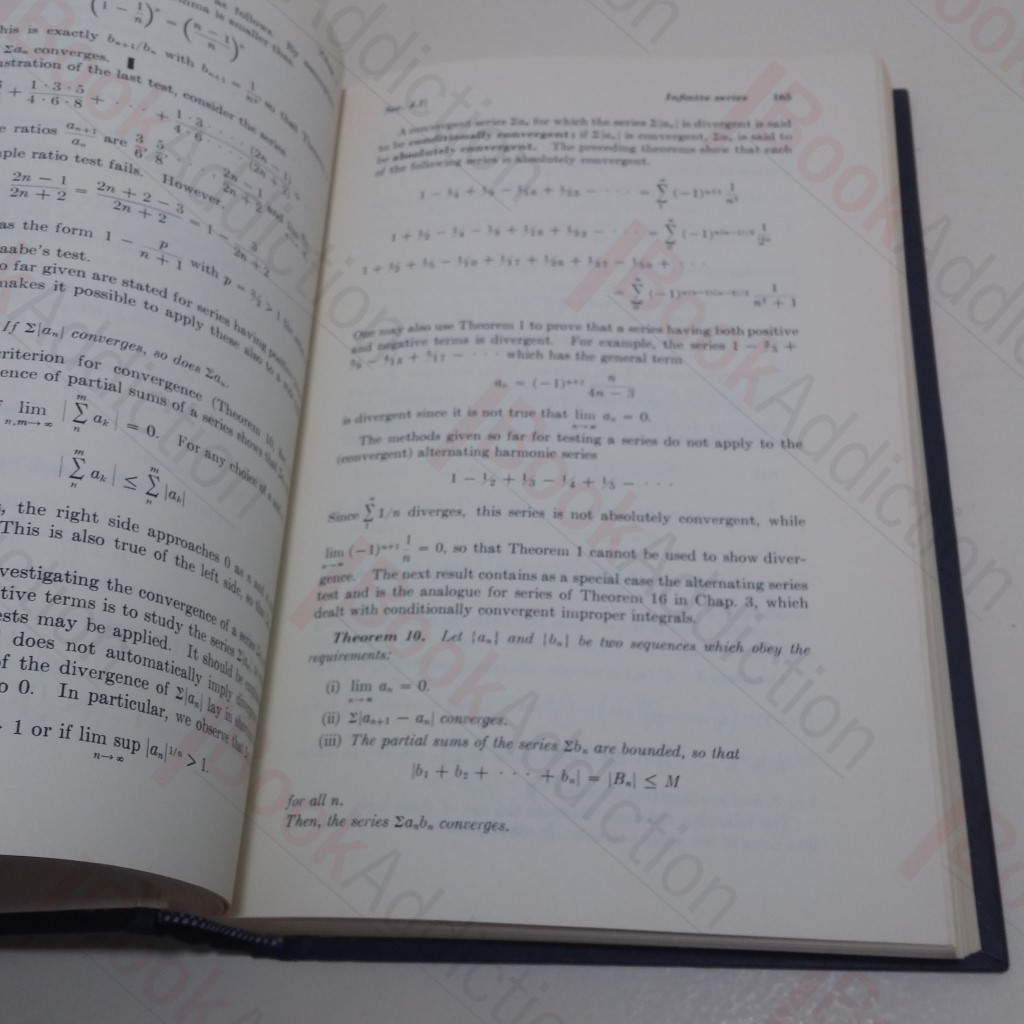 (1 − 1/n)^r − ((n − 1)/n)^r
as follows. By
ma is smaller than
his is exactly b_{n+1}/b_n with b_{n+1} = 1/n^r so that
Σa_n converges. ▮
stration of the last test, consider the series
+ 1·3·5/4·6·8 + · · · + 1·3 · · · (2n − 1)/4·6 · · · (2n + 2) +
e ratios a_{n+1}/a_n are 3/6, 5/8, · · · , 2n − 1/2n + 2 and
ple ratio test fails. However,
2n − 1/2n + 2 = 2n + 2 − 3/2n + 2 = 1 − 3/2n + 2
as the form 1 − p/n + 1 with p = 3/2 > 1
aabe's test.
o far given are stated for series having positive
makes it possible to apply these also to a
If Σ|a_n| converges, so does Σa_n.
riterion for convergence (Theorem 10,
ence of partial sums of a series shows that
f lim_{n,m→∞} |Σ_n^m a_k| = 0. For any choice of n and
|Σ_n^m a_k| ≤ Σ_n^m |a_k|
, the right side approaches 0 as n and
This is also true of the left side, so that
vestigating the convergence of a series
tive terms is to study the series
ests may be applied. It should be
does not automatically imply
f the divergence of Σ|a_n| lay in
o 0. In particular, we observe that
1 or if lim sup_{n→∞} |a_n|^{1/n} > 1.
Sec. Infinite series 165
A convergent series Σa_n for which the series Σ|a_n| is divergent is said
to be conditionally convergent; if Σ|a_n| is convergent, Σa_n is said to
be absolutely convergent. The preceding theorems show that each
of the following series is absolutely convergent.
1 − 1/4 + 1/9 − 1/16 + 1/25 − · · · = Σ_1^∞ (−1)^{n+1} 1/n²
1 + 1/2 − 1/4 − 1/8 + 1/16 + 1/32 − · · · = Σ (−1)^{n(n−1)/2} 1/2^n
1 + 1/2 + 1/5 − 1/10 + 1/17 + 1/26 + 1/37 − 1/50 + · · ·
= Σ 1/n² + 1
One may also use Theorem 1 to prove that a series having both positive
and negative terms is divergent. For example, the series 1 − 2/5 +
3/9 − 4/13 + 5/17 − · · · which has the general term
a_n = (−1)^{n+1} n/4n − 3
is divergent since it is not true that lim_{n→∞} a_n = 0.
The methods given so far for testing a series do not apply to the
(convergent) alternating harmonic series
1 − 1/2 + 1/3 − 1/4 + 1/5 − · · ·
Since Σ_1^∞ 1/n diverges, this series is not absolutely convergent, while
lim_{n→∞} (−1)^{n+1} 1/n = 0, so that Theorem 1 cannot be used to show diver-
gence. The next result contains as a special case the alternating series
test and is the analogue for series of Theorem 16 in Chap. 3, which
dealt with conditionally convergent improper integrals.
Theorem 10. Let {a_n} and {b_n} be two sequences which obey the
requirements:
(i) lim_{n→∞} a_n = 0.
(ii) Σ|a_{n+1} − a_n| converges.
(iii) The partial sums of the series Σb_n are bounded, so that
|b_1 + b_2 + · · · + b_n| = |B_n| ≤ M
for all n.
Then, the series Σa_nb_n converges.
BookAddiction